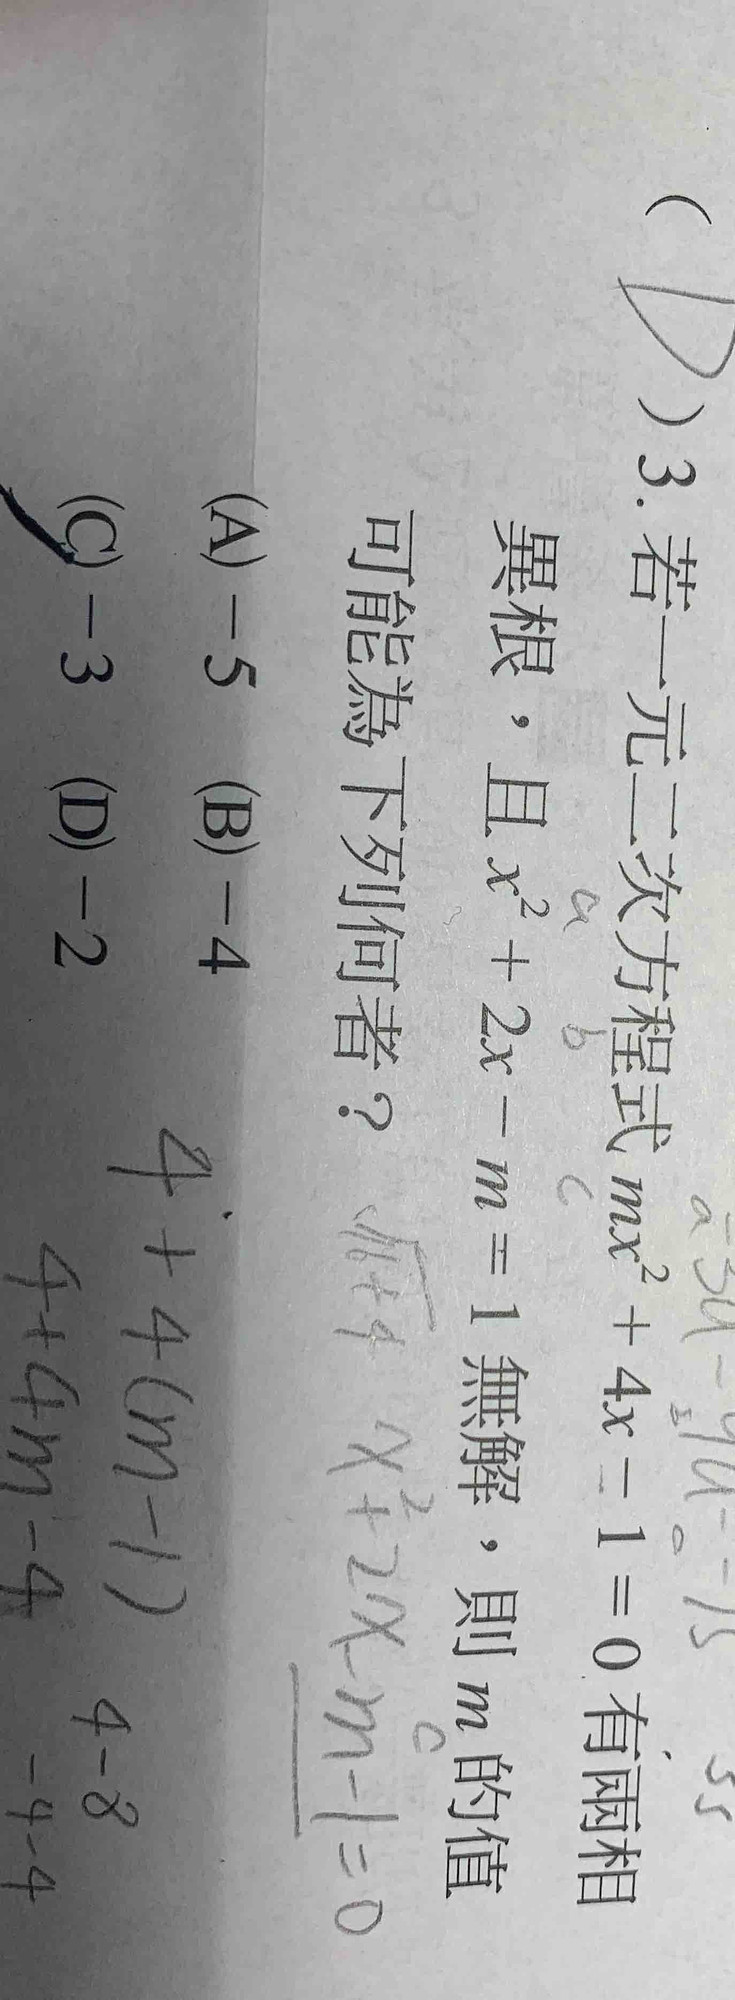 ( D ) 3. 若一元二次方程式 mx² + 4x - 1 = 0 有兩相
異根，且 x² + 2x - m = 1 無解，則 m 的值
a b c
可能為下列何者？
x² + 2x - m - 1 = 0
c
(A) -5 (B) -4
(C) -3 (D) -2
4 + 4(m - 1)
4 + 4m - 4
4 - 8
-4 - 4